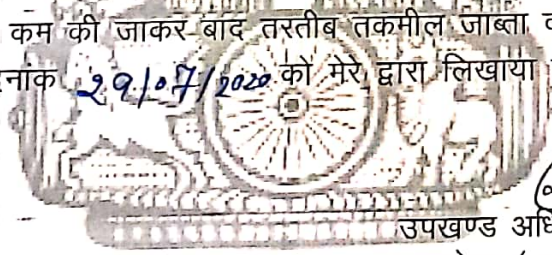 कम की जाकर बाद तरतीब तकमील जाब्ता
29/07/2020 को मेरे द्वारा लिखाया
उपखण्ड